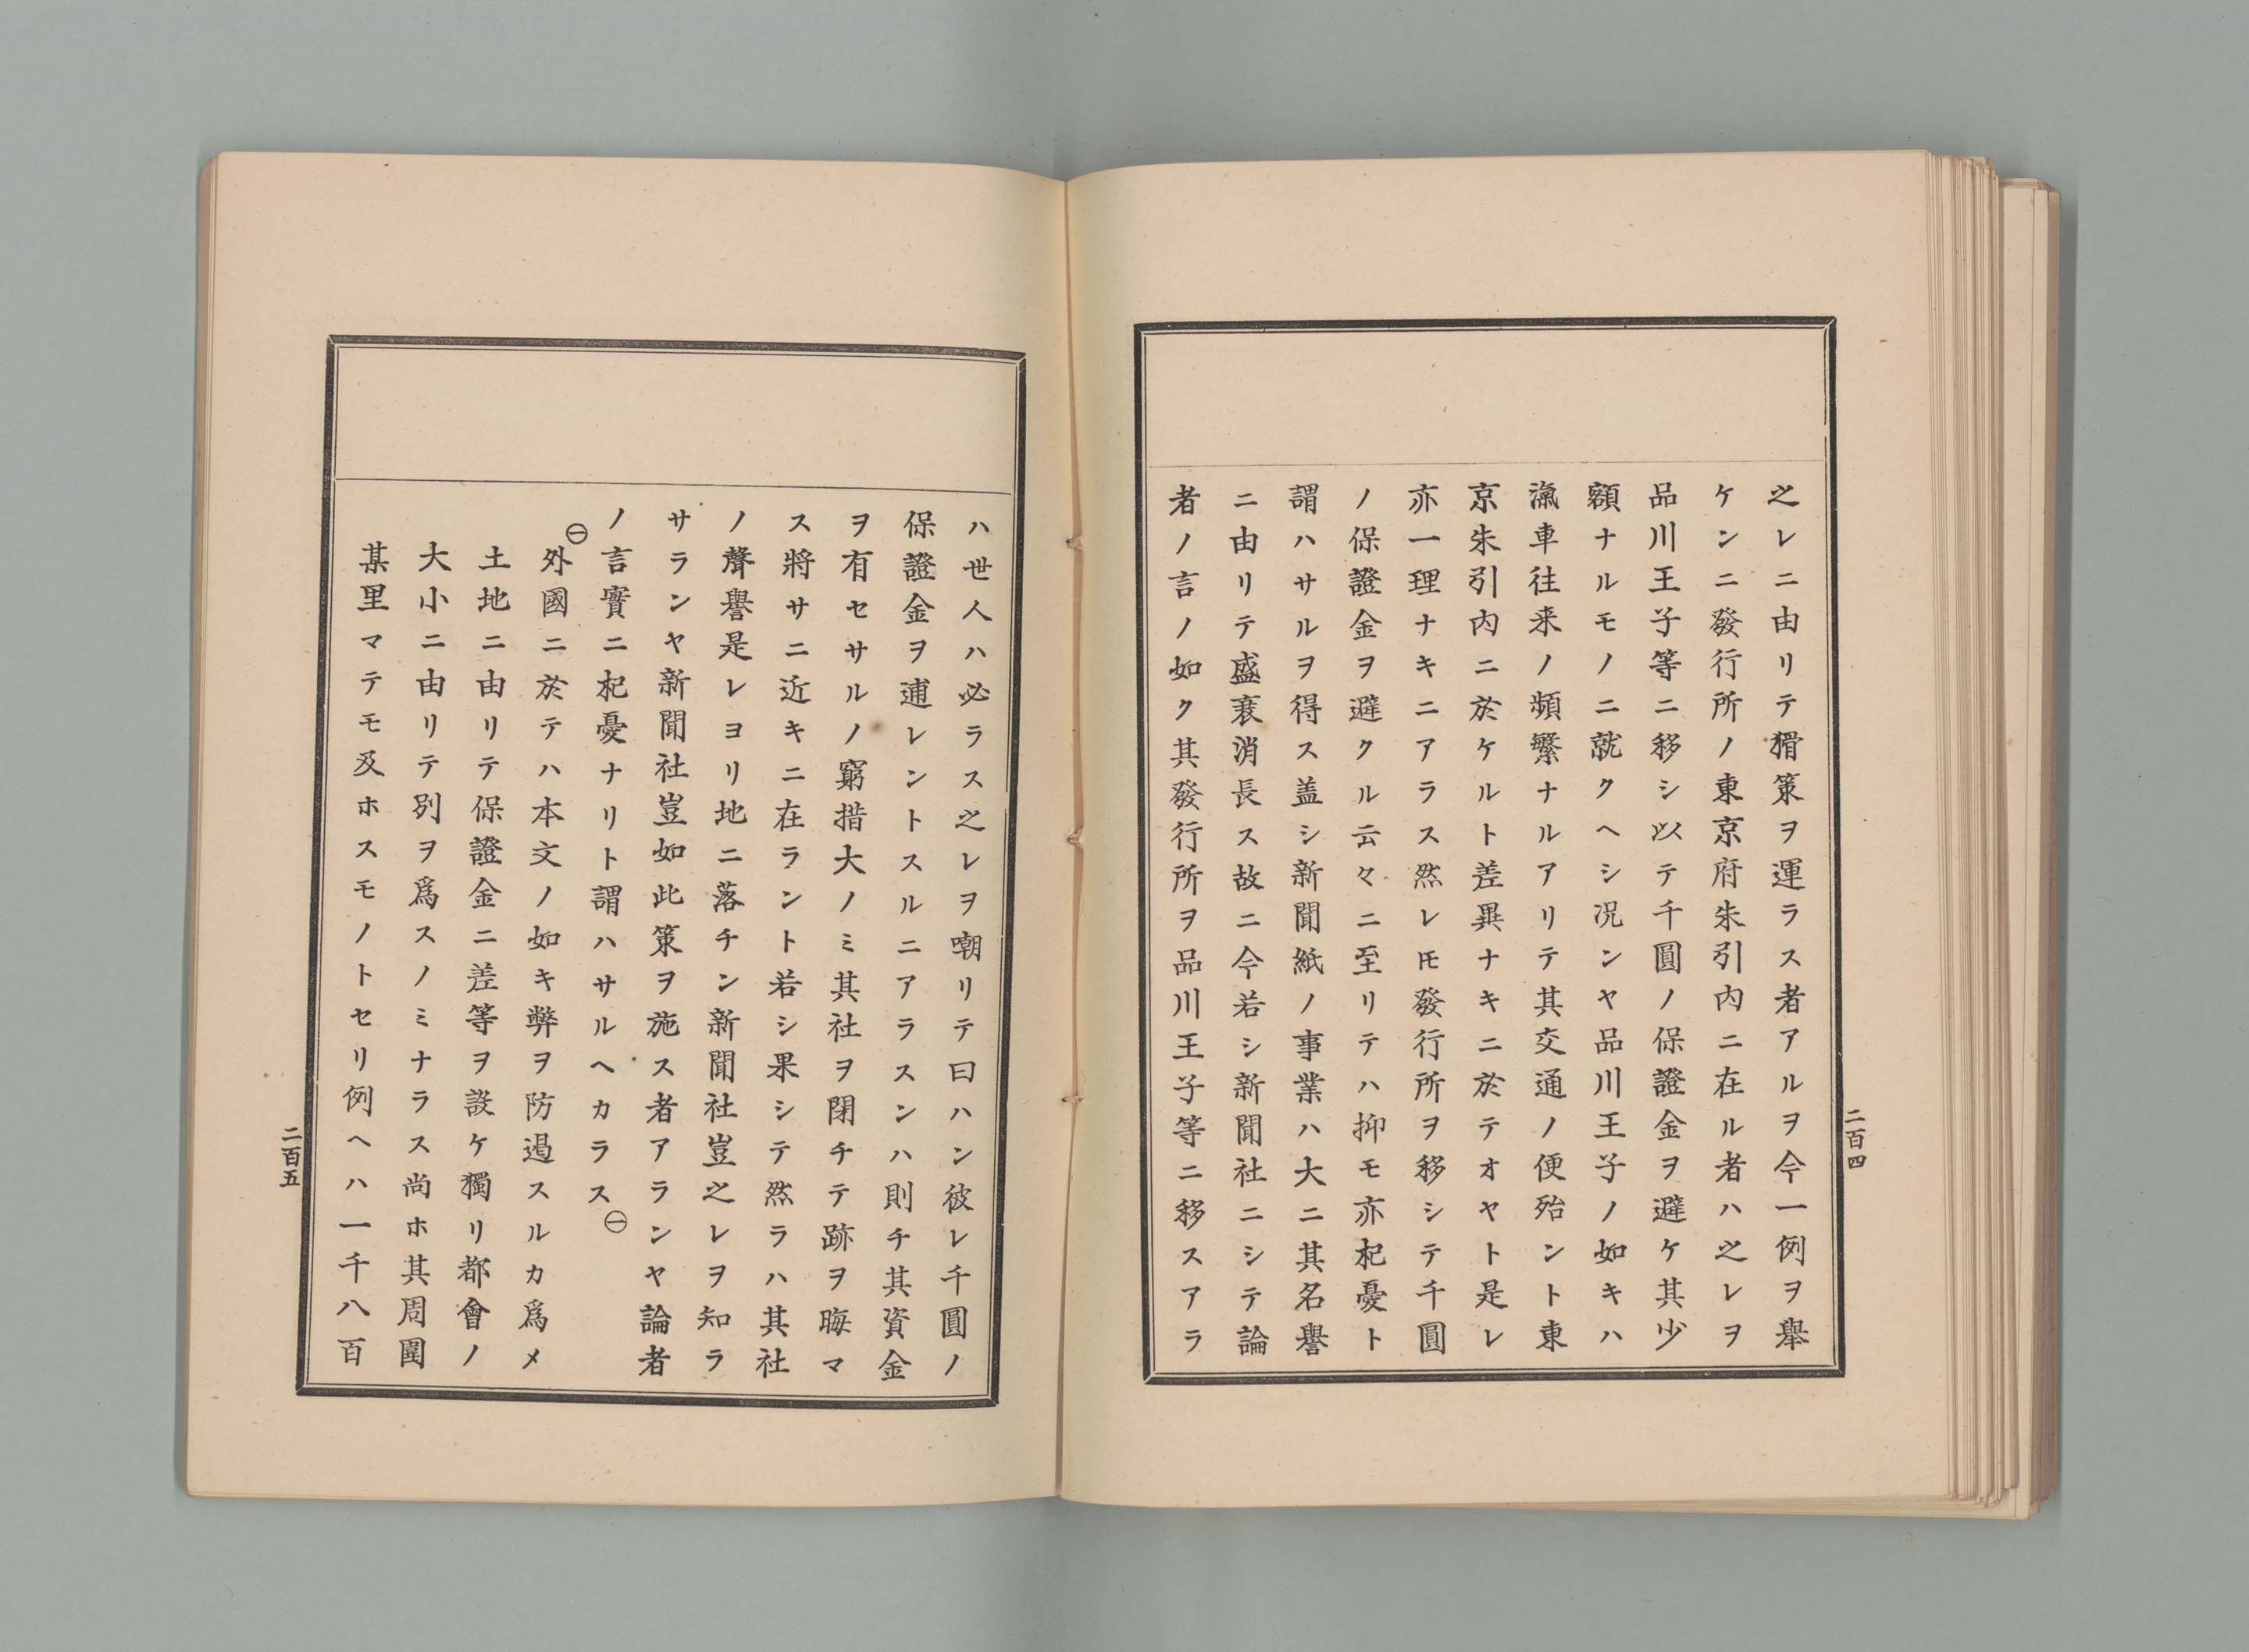 之レニ由リテ猾策ヲ運ラス者アルヲ今一例ヲ擧
ケンニ發行所ノ東京府朱引内ニ在ル者ハ之レヲ
品川王子等ニ移シ以テ千圓ノ保證金ヲ避ケ其少
額ナルモノニ就クヘシ况ンヤ品川王子ノ如キハ
滊車往来ノ頻繁ナルアリテ其交通ノ便殆ント東
京朱引内ニ於ケルト差異ナキニ於テオヤト是レ
亦一理ナキニアラス然レ𪜈發行所ヲ移シテ千圓
ノ保證金ヲ避クル云々ニ至リテハ抑モ亦杞憂ト
謂ハサルヲ得ス盖シ新聞紙ノ事業ハ大ニ其名譽
ニ由リテ盛衰消長ス故ニ今若シ新聞社ニシテ論
者ノ言ノ如ク其發行所ヲ品川王子等ニ移スアラ
二百四
ハ世人ハ必ラス之レヲ嘲リテ曰ハン彼レ千圓ノ
保證金ヲ逋レントスルニアラスンハ則チ其資金
ヲ有セサルノ窮措大ノミ其社ヲ閉チテ跡ヲ晦マ
ス將サニ近キニ在ラント若シ果シテ然ラハ其社
ノ聲譽是レヨリ地ニ落チン新聞社豈之レヲ知ラ
サランヤ新聞社豈如此策ヲ施ス者アランヤ論者
ノ言實ニ杞憂ナリト謂ハサルヘカラス㊀
㊀外國ニ於テハ本文ノ如キ弊ヲ防遏スルカ爲メ
土地ニ由リテ保證金ニ差等ヲ設ケ獨リ都會ノ
大小ニ由リテ別ヲ爲スノミナラス尚ホ其周圍
某里マテモ及ホスモノトセリ例ヘハ一千八百
二百五